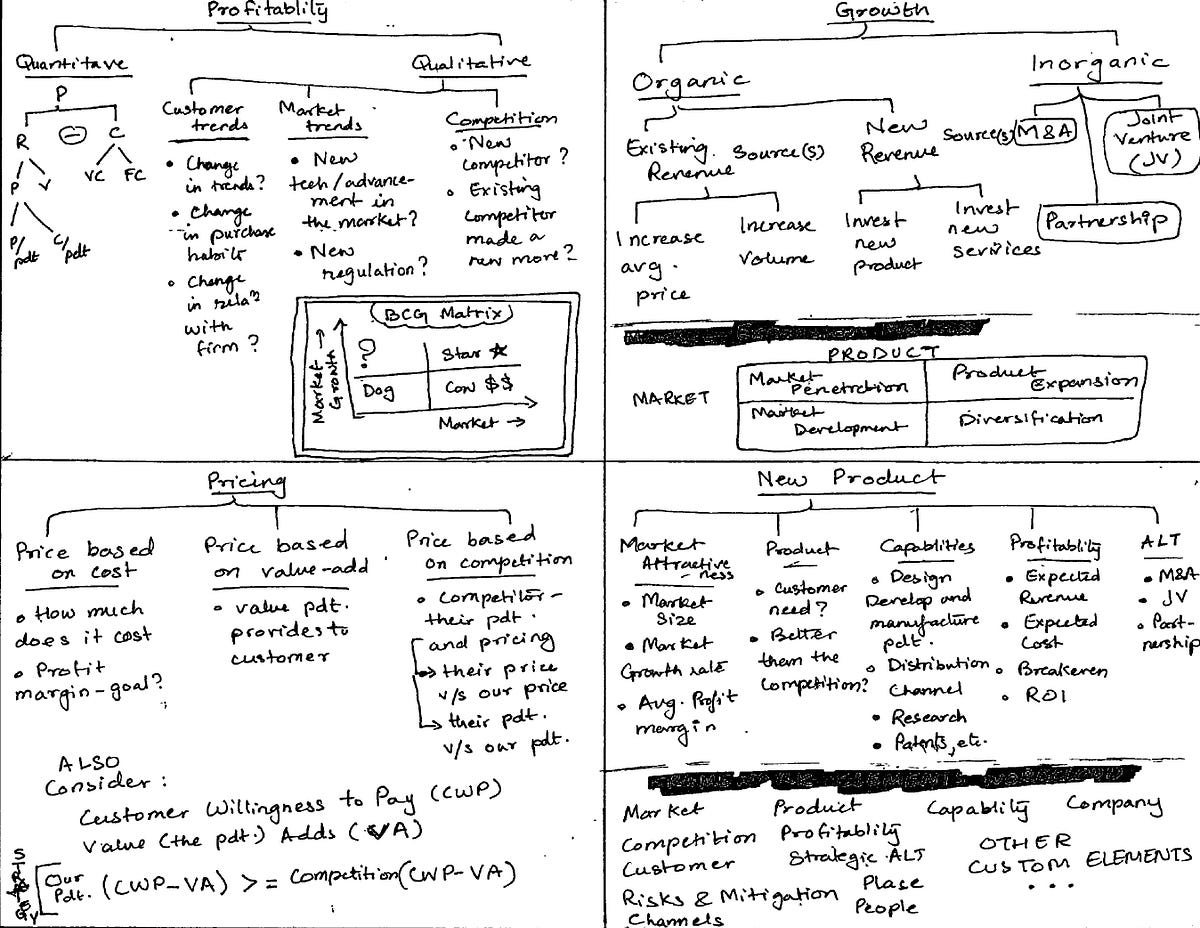 Profitablity
Quantitave
Qualitative
P
R
C
P
V
VC
FC
P/pdt
C/pdt
Customer
trends
• Change
in trends?
• Change
in purchase
habits
• Change
in relaⁿ
with
firm?
Market
trends
• New
tech/advance-
ment in
the market?
• New
regulation?
Competition
• New
competitor?
• Existing
competitor
made a
new move?
BCG Matrix
Market →
Growth
?
Star ☆
Dog
Cow $$
Market →
Growth
Organic
Inorganic
Existing
Revenue
Source(s)
New
Revenue
Source(s)
M&A
Joint
Venture
(JV)
Partnership
Increase
avg.
price
Increase
Volume
Invest
new
product
Invest
new
serivices
PRODUCT
MARKET
Market
Penetration
Product
Expansion
Market
Development
Diversification
Pricing
Price based
on cost
• How much
does it cost
• Profit
margin-goal?
Price based
on value-add
• value pdt.
provides to
customer
Price based
on competition
• Competitor-
their pdt.
and pricing
→ their price
v/s our price
→ their pdt.
v/s our pdt.
ALSO
Consider:
Customer Willingness to Pay (CWP)
Value (the pdt.) Adds (VA)
Our
Pdt. (CWP-VA) >= Competition(CWP-VA)
New Product
Market
Attractive
-ness
• Market
Size
• Market
Growth rate
• Avg. Profit
margin
Product
• Customer
need?
• Better
them the
Competition?
Capablities
• Design
Develop and
manufacture
pdt.
• Distribution
Channel
• Research
• Patents, etc.
Profitablity
• Expected
Revenue
• Expected
Cost
• Breakeven
• ROI
ALT
• M&A
• JV
• Part-
nership
Market Product Capablity Company
Competition Profitablity OTHER
Customer Strategic ALT CUSTOM ELEMENTS
Risks & Mitigation Place ...
Channels People